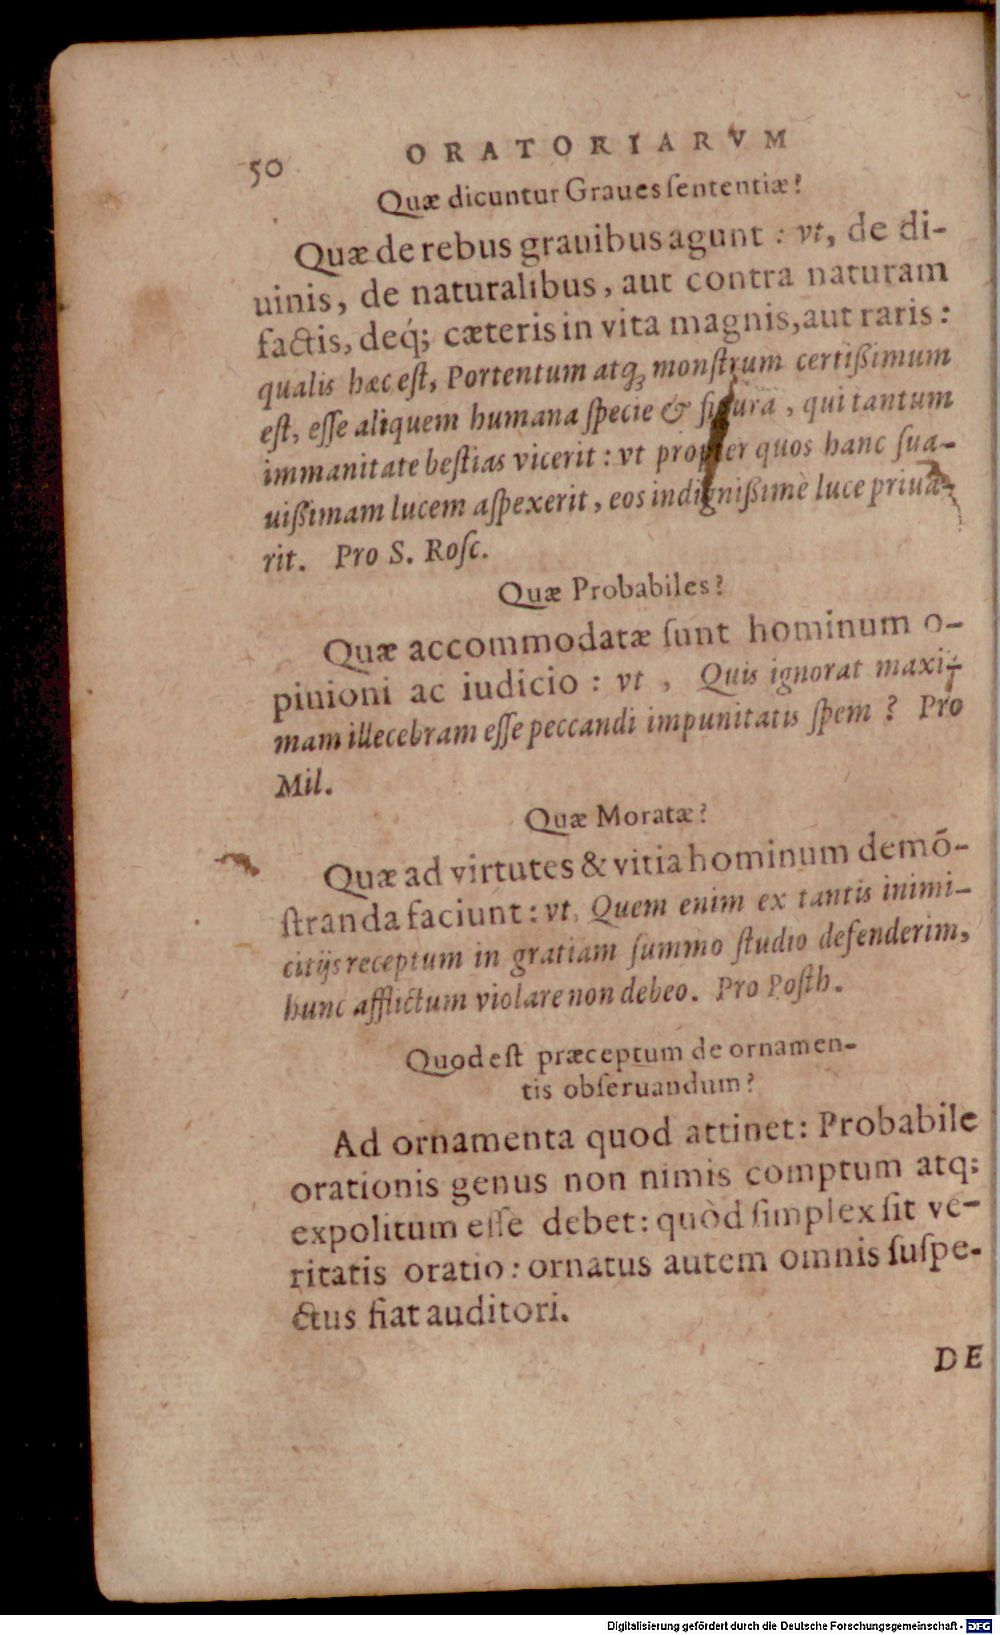 50 ORATORIARVM
Quæ dicuntur Graues ſententiæ?
Quæ de rebus grauibus agunt : vt, de di-
uinis, de naturalibus, aut contra naturam
factis, deq́; cæteris in vita magnis, aut raris :
qualis hæc eſt, Portentum atq; monſtrum certißimum
eſt, eſſe aliquem humana ſpecie & figura, qui tantum
immanitate beſtias vicerit : vt propter quos hanc ſua-
uißimam lucem aſpexerit, eos indignißimè luce priua-
rit. Pro S. Roſc.
Quæ Probabiles?
Quæ accommodatæ ſunt hominum o-
pinioni ac iudicio : vt , Quis ignorat maxi-
mam illecebram eſſe peccandi impunitatis ſpem ? Pro
Mil.
Quæ Moratæ?
Quæ ad virtutes & vitia hominum demõ-
ſtranda faciunt : vt, Quem enim ex tantis inimi-
citijs receptum in gratiam ſummo ſtudio defenderim,
hunc afflictum violare non debeo. Pro Poſth.
Quod eſt præceptum de ornamen-
tis obſeruandum?
Ad ornamenta quod attinet: Probabile
orationis genus non nimis comptum atq;
expolitum eſſe debet: quòd ſimplex ſit ve-
ritatis oratio: ornatus autem omnis ſuſpe-
ctus fiat auditori.
DE
Digitalisierung gefördert durch die Deutsche Forschungsgemeinschaft - DFG